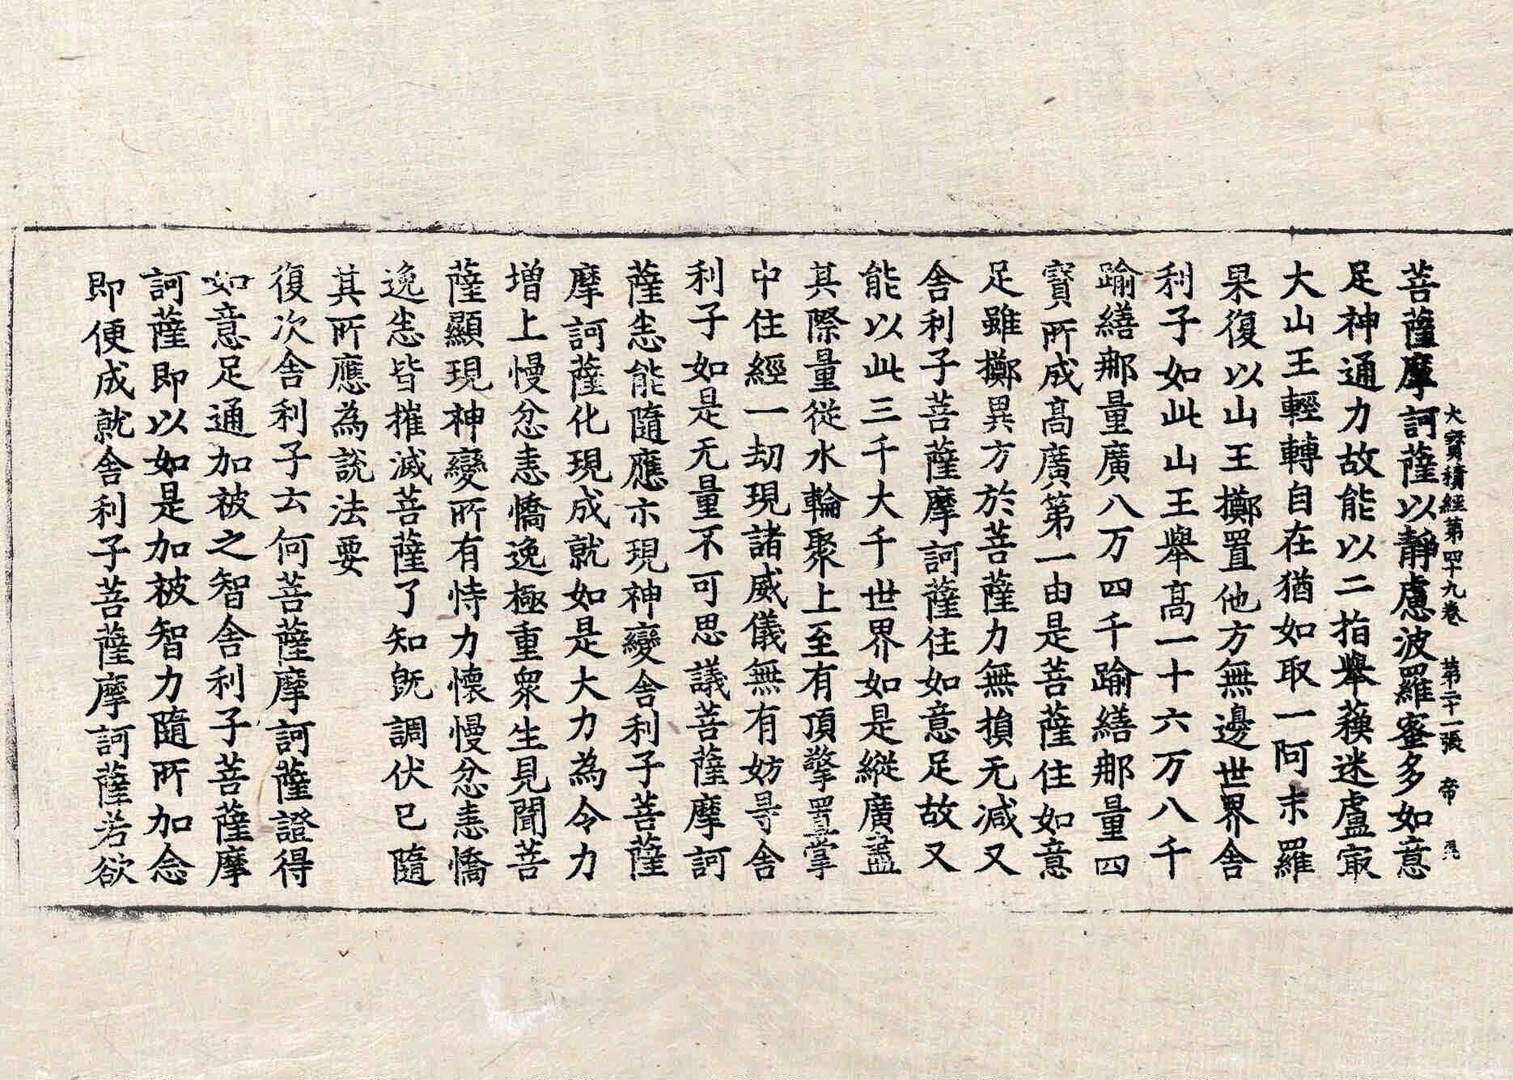 大寶積經第四十九卷 第二十一張 帝
菩薩摩訶薩以靜慮波羅蜜多如意
足神通力故能以二指舉蘓迷盧㝡
大山王輕轉自在猶如取一阿末羅
果復以山王擲置他方無邊世界舍
利子如此山王舉高一十六万八千
踰繕那量廣八万四千踰繕那量四
寶所成高廣第一由是菩薩住如意
足雖擲異方於菩薩力無損无減又
舍利子菩薩摩訶薩住如意足故又
能以此三千大千世界如是縱廣盡
其際量從水輪聚上至有頂擎置掌
中住經一劫現諸威儀無有妨㝵舍
利子如是无量不可思議菩薩摩訶
薩悉能隨應示現神變舍利子菩薩
摩訶薩化現成就如是大力為令力
增上慢忿恚憍逸極重衆生見聞菩
薩顯現神變所有恃力懷慢忿恚憍
逸悉皆摧滅菩薩了知旣調伏已隨
其所應為說法要
復次舍利子云何菩薩摩訶薩證得
如意足通加被之智舍利子菩薩摩
訶薩即以如是加被智力隨所加念
即便成就舍利子菩薩摩訶薩若欲